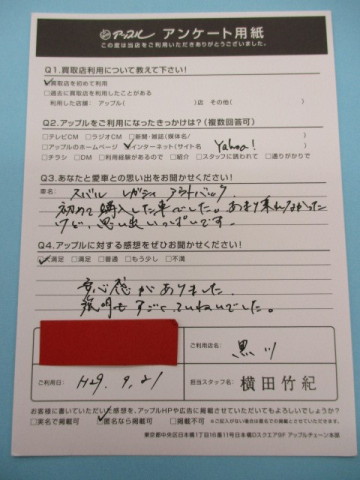 アップル アンケート用紙
この度は当店をご利用いただきありがとうございました。
Q1.買取店利用について教えて下さい!
☑買取店を初めて利用
□過去に買取店を利用したことがある
利用した店舗: アップル( )店 その他( )
Q2.アップルをご利用になったきっかけは?(複数回答可)
□テレビCM □ラジオCM □新聞・雑誌(媒体名/ )
□アップルのホームページ ☑インターネット(サイト名 Yahoo! )
□チラシ □DM □利用経験があるので □紹介 □スタッフに誘われて □通りがかりで
Q3.あなたと愛車との思い出をお聞かせください!
車名: スバル レガシィ アウトバック
初めて購入した車でした。あまり乗れなかった
けど、思い出いっぱいです。
Q4.アップルに対する感想をぜひお聞かせください!
☑満足 □満足 □普通 □もう少し □不満
安心感がありました
説明もすごくていねいでした。
ご利用店名: 黒川
ご利用日: H29.9.21
担当スタッフ名: 横田竹紀
お客様に書いていただいた感想を、アップルHPや広告に掲載させていただいてもよろしいでしょうか?
□実名で掲載可 ☑匿名なら掲載可 □掲載不可 *ご記入がない場合は匿名での掲載とさせていただきます。
東京都中央区日本橋1丁目16番11号日本橋Dスクエア9F アップルチェーン本部